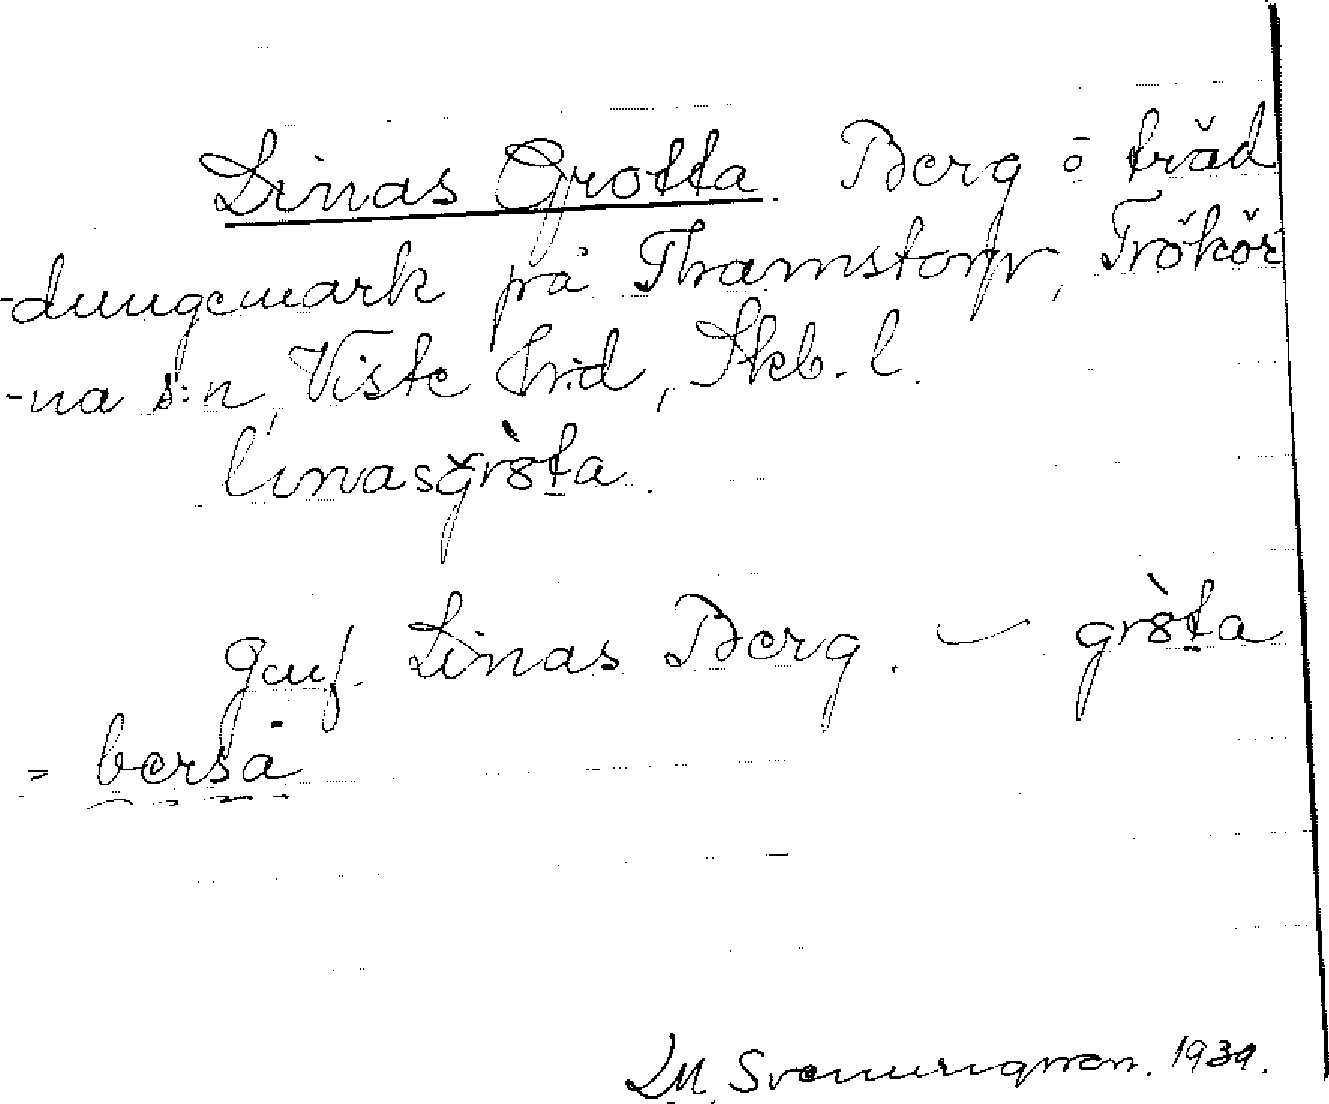 Linas Grotta. Berg ō träd
-dungemark på Thamstorp, Trökör
-na s:n, Viste hrd, Skb. l.
linasgròta.
jmf. Linas Berg. gròta
= berså
LM. Svennungsson. 1931.